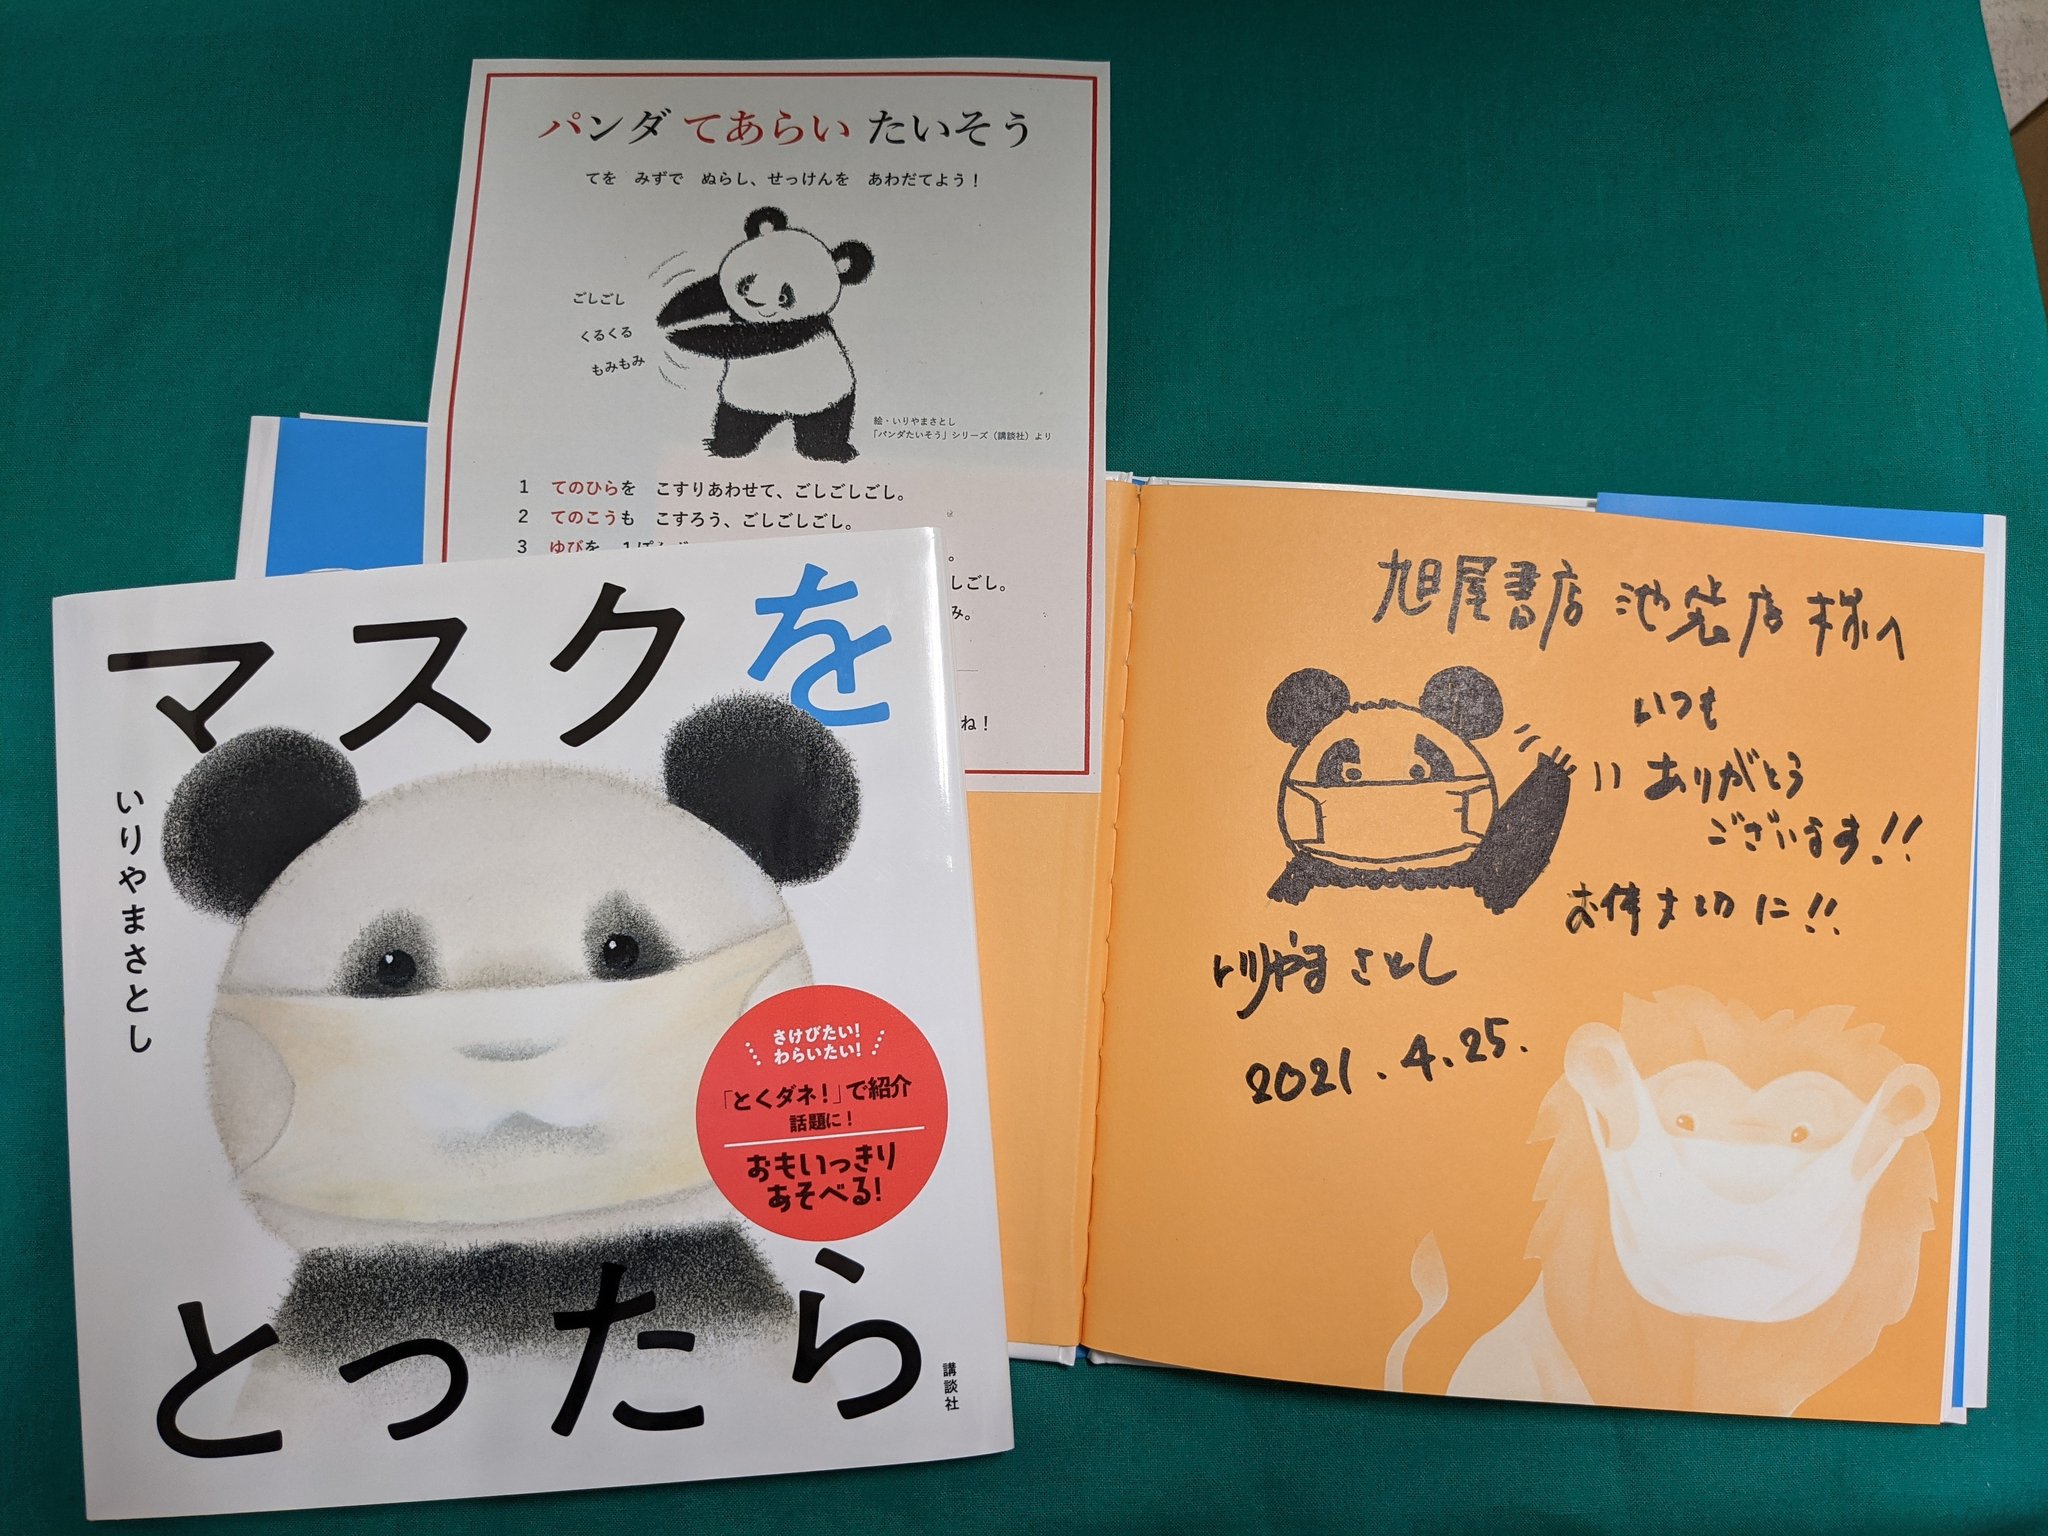 パンダ てあらい たいそう
てを みずで ぬらし、せっけんを あわだてよう！
ごしごし
くるくる
もみもみ
絵・いりやまさとし
「パンダたいそう」シリーズ（講談社）より
1 てのひらを こすりあわせて、ごしごしごし。
2 てのこうも こすろう、ごしごしごし。
3 ゆびを 1ぽん
。
しごし。
み。
ね！
マスクを
とったら
いりやまさとし
さけびたい！
わらいたい！
「とくダネ！」で紹介
話題に！
おもいっきり
あそべる！
講談社
旭屋書店 池袋店 様へ
いつも
ありがとう
ございます!!
お体大切に!!
いりやまさとし
2021.4.25.